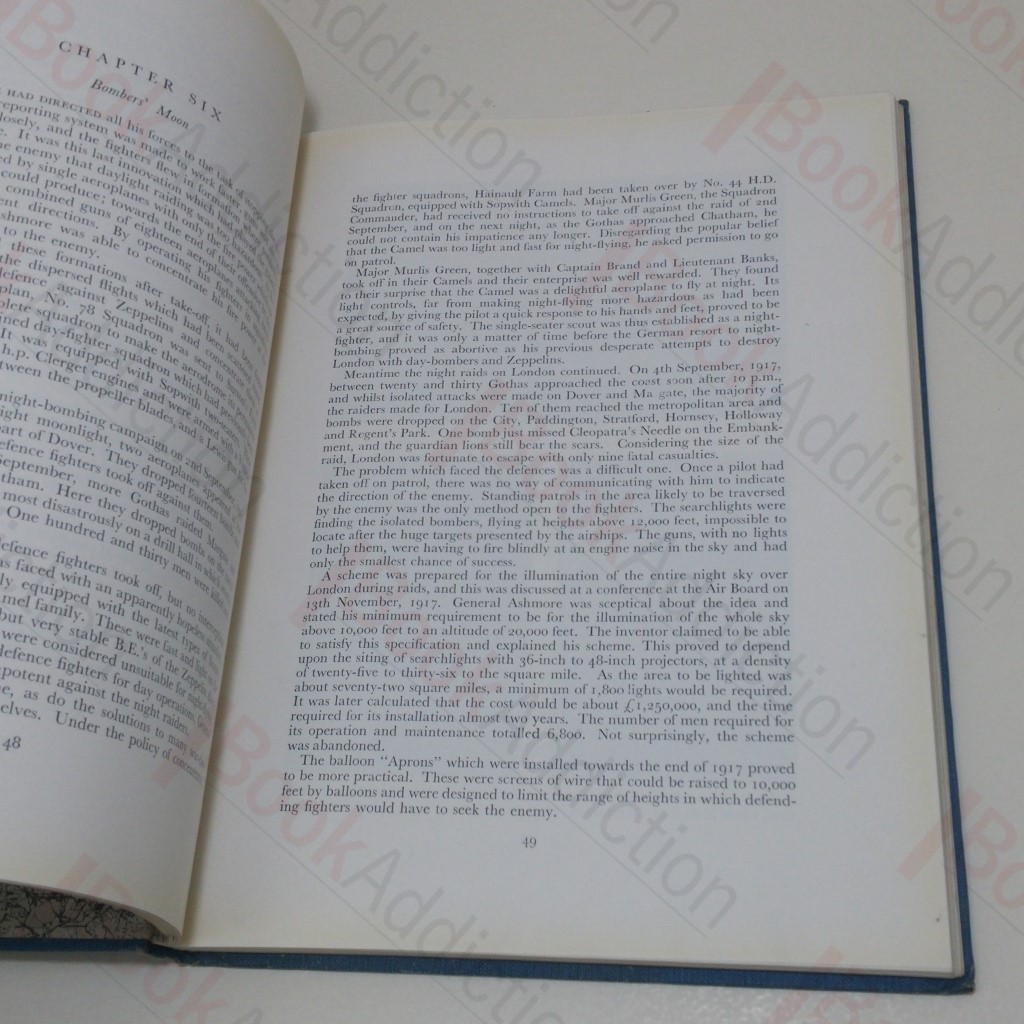 CHAPTER SIX
Bombers' Moon
HAD DIRECTED all his forces to the task of
reporting system was made to work faster, gun
losely, and the fighters flew in formation
e. It was this last innovation which had
e enemy that daylight raiding was too
ed by single aeroplanes with only the fire
could produce; towards the end of their
combined guns of eighteen fighters
ent directions. By operating his
shmore was able to concentrate his fire
to the enemy.
these formations after take-off, it had been
the dispersed flights which had been
defence against Zeppelins and
plan, No. 78 Squadron was sent to
plete squadron to make the aerodrome its
ined day-fighter squadron which had
It was equipped with Sopwith two-seaters
h.p. Clerget engines and were armed with
between the propeller blades, and a Lewis gun
night-bombing campaign on 2nd September
ight moonlight, two aeroplanes appeared
part of Dover. They dropped fourteen bombs
defence fighters took off against them.
September, more Gothas raided Margate
tham. Here they dropped bombs on the
most disastrously on a drill hall in which
One hundred and thirty men were killed
defence fighters took off, but no interception
as faced with an apparently hopeless
ly equipped with the latest types of
mel family. These were fast and light on
but very stable B.E.'s of the Zeppelin
were considered unsuitable for night
defence fighters for day operations,
mpotent against the night raiders.
e, as do the solutions to many
elves. Under the policy of concentrat
48
the fighter squadrons, Hainault Farm had been taken over by No. 44 H.D.
Squadron, equipped with Sopwith Camels. Major Murlis Green, the Squadron
Commander, had received no instructions to take off against the raid of 2nd
September, and on the next night, as the Gothas approached Chatham, he
could not contain his impatience any longer. Disregarding the popular belief
that the Camel was too light and fast for night-flying, he asked permission to go
on patrol.
Major Murlis Green, together with Captain Brand and Lieutenant Banks,
took off in their Camels and their enterprise was well rewarded. They found
to their surprise that the Camel was a delightful aeroplane to fly at night. Its
light controls, far from making night-flying more hazardous as had been
expected, by giving the pilot a quick response to his hands and feet, proved to be
a great source of safety. The single-seater scout was thus established as a night-
fighter, and it was only a matter of time before the German resort to night-
bombing proved as abortive as his previous desperate attempts to destroy
London with day-bombers and Zeppelins.
Meantime the night raids on London continued. On 4th September, 1917,
between twenty and thirty Gothas approached the coast soon after 10 p.m.,
and whilst isolated attacks were made on Dover and Ma gate, the majority of
the raiders made for London. Ten of them reached the metropolitan area and
bombs were dropped on the City, Paddington, Stratford, Hornsey, Holloway
and Regent's Park. One bomb just missed Cleopatra's Needle on the Embank-
ment, and the guardian lions still bear the scars. Considering the size of the
raid, London was fortunate to escape with only nine fatal casualties.
The problem which faced the defences was a difficult one. Once a pilot had
taken off on patrol, there was no way of communicating with him to indicate
the direction of the enemy. Standing patrols in the area likely to be traversed
by the enemy was the only method open to the fighters. The searchlights were
finding the isolated bombers, flying at heights above 12,000 feet, impossible to
locate after the huge targets presented by the airships. The guns, with no lights
to help them, were having to fire blindly at an engine noise in the sky and had
only the smallest chance of success.
A scheme was prepared for the illumination of the entire night sky over
London during raids, and this was discussed at a conference at the Air Board on
13th November, 1917. General Ashmore was sceptical about the idea and
stated his minimum requirement to be for the illumination of the whole sky
above 10,000 feet to an altitude of 20,000 feet. The inventor claimed to be able
to satisfy this specification and explained his scheme. This proved to depend
upon the siting of searchlights with 36-inch to 48-inch projectors, at a density
of twenty-five to thirty-six to the square mile. As the area to be lighted was
about seventy-two square miles, a minimum of 1,800 lights would be required.
It was later calculated that the cost would be about £1,250,000, and the time
required for its installation almost two years. The number of men required for
its operation and maintenance totalled 6,800. Not surprisingly, the scheme
was abandoned.
The balloon "Aprons" which were installed towards the end of 1917 proved
to be more practical. These were screens of wire that could be raised to 10,000
feet by balloons and were designed to limit the range of heights in which defend-
ing fighters would have to seek the enemy.
49
BookAddiction